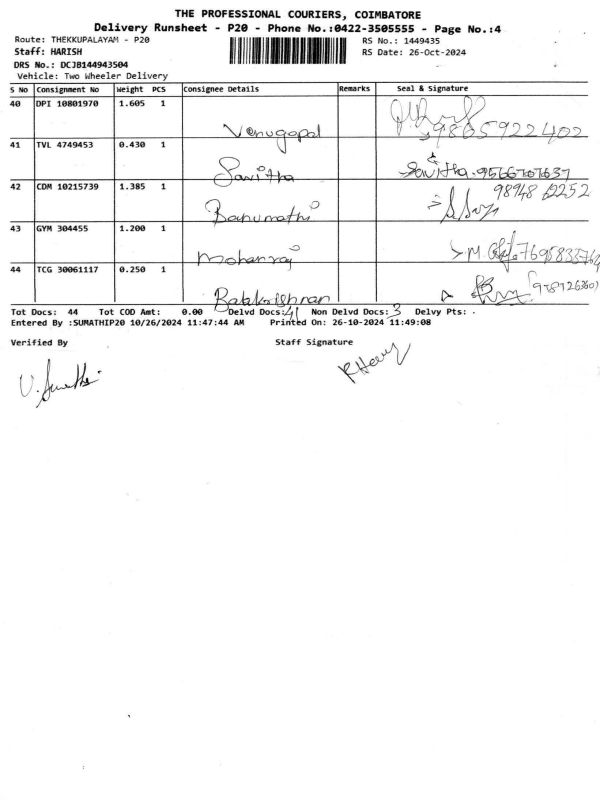 THE PROFESSIONAL COURIERS, COIMBATORE
Delivery Runsheet - P20 - Phone No.:0422-3505555 - Page No.:4
Route: THEKKUPALAYAM - P20 RS No.: 1449435
Staff: HARISH RS Date: 26-Oct-2024
DRS No.: DCJB144943504
Vehicle: Two Wheeler Delivery
S No Consignment No Weight PCS Consignee Details Remarks Seal & Signature
40 DPI 10801970 1.605 1
Venugopal 9865922402
41 TVL 4749453 0.430 1
Savitha Savitha.
42 CDM 10215739 1.385 1
Banumathi
43 GYM 304455 1.200 1
Mohanraj
44 TCG 30061117 0.250 1
Balakrishnan
Tot Docs: 44 Tot COD Amt: 0.00 Delvd Docs: 41 Non Delvd Docs: 3 Delvy Pts: .
Entered By :SUMATHIP20 10/26/2024 11:47:44 AM Printed On: 26-10-2024 11:49:08
Verified By Staff Signature